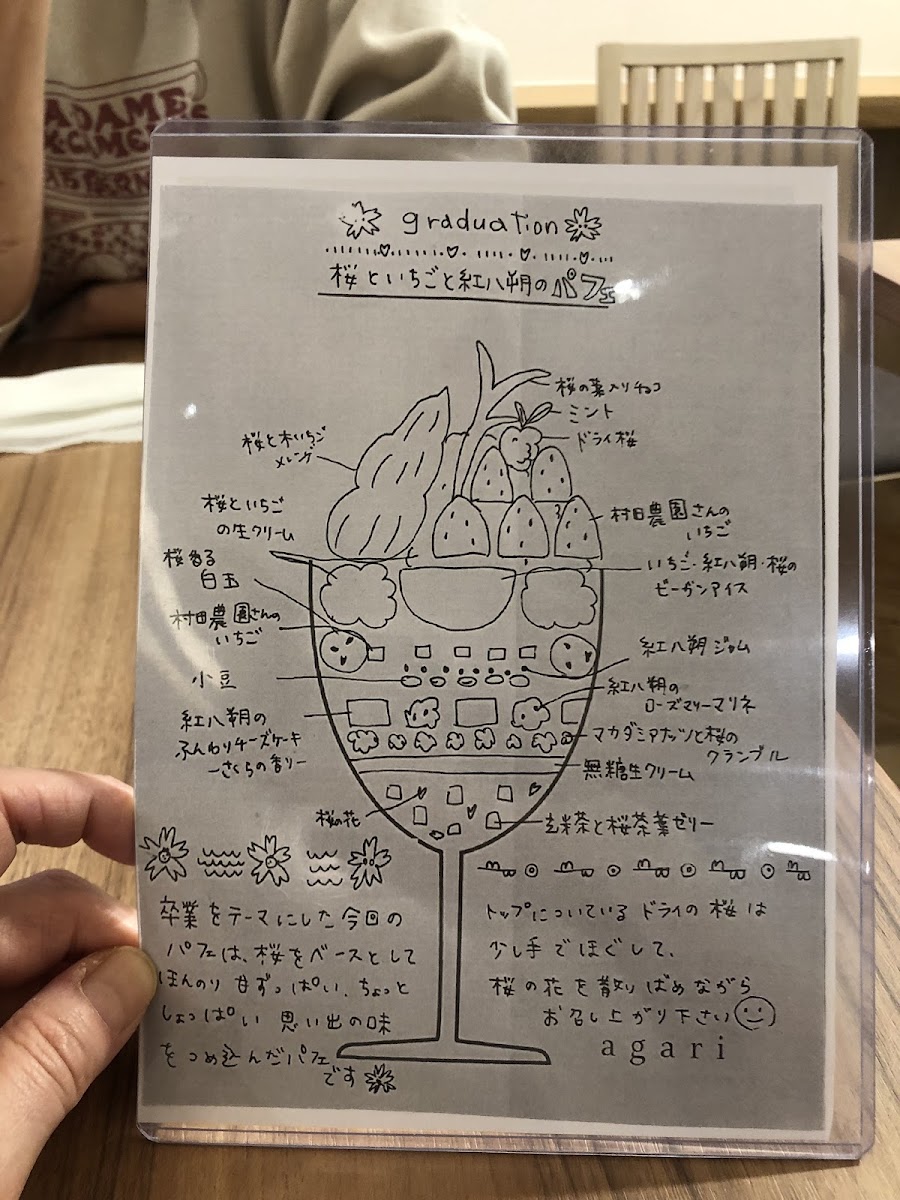 graduation
桜といちごと紅八朔のパフェ
桜の葉入りチョコ
ミント
ドライ桜
桜と木いちご
メレンゲ
桜といちご
の生クリーム
村田農園さんの
いちご
桜香る
白玉
いちご・紅八朔・桜の
ビーガンアイス
村田農園さんの
いちご
紅八朔ジャム
小豆
紅八朔の
ローズマリーマリネ
紅八朔の
ふんわりチーズケーキ
ーさくらの香りー
マカダミアナッツと桜の
クランブル
無糖生クリーム
桜の花
玄米茶と桜茶葉ゼリー
卒業をテーマにした今回の
パフェは、桜をベースとして
ほんのり甘ずっぱい、ちょっと
しょっぱい思い出の味
をつめ込んだパフェ
です
トップについているドライの桜は
少し手でほぐして、
桜の花を散りばめながら
お召し上がり下さい
agari